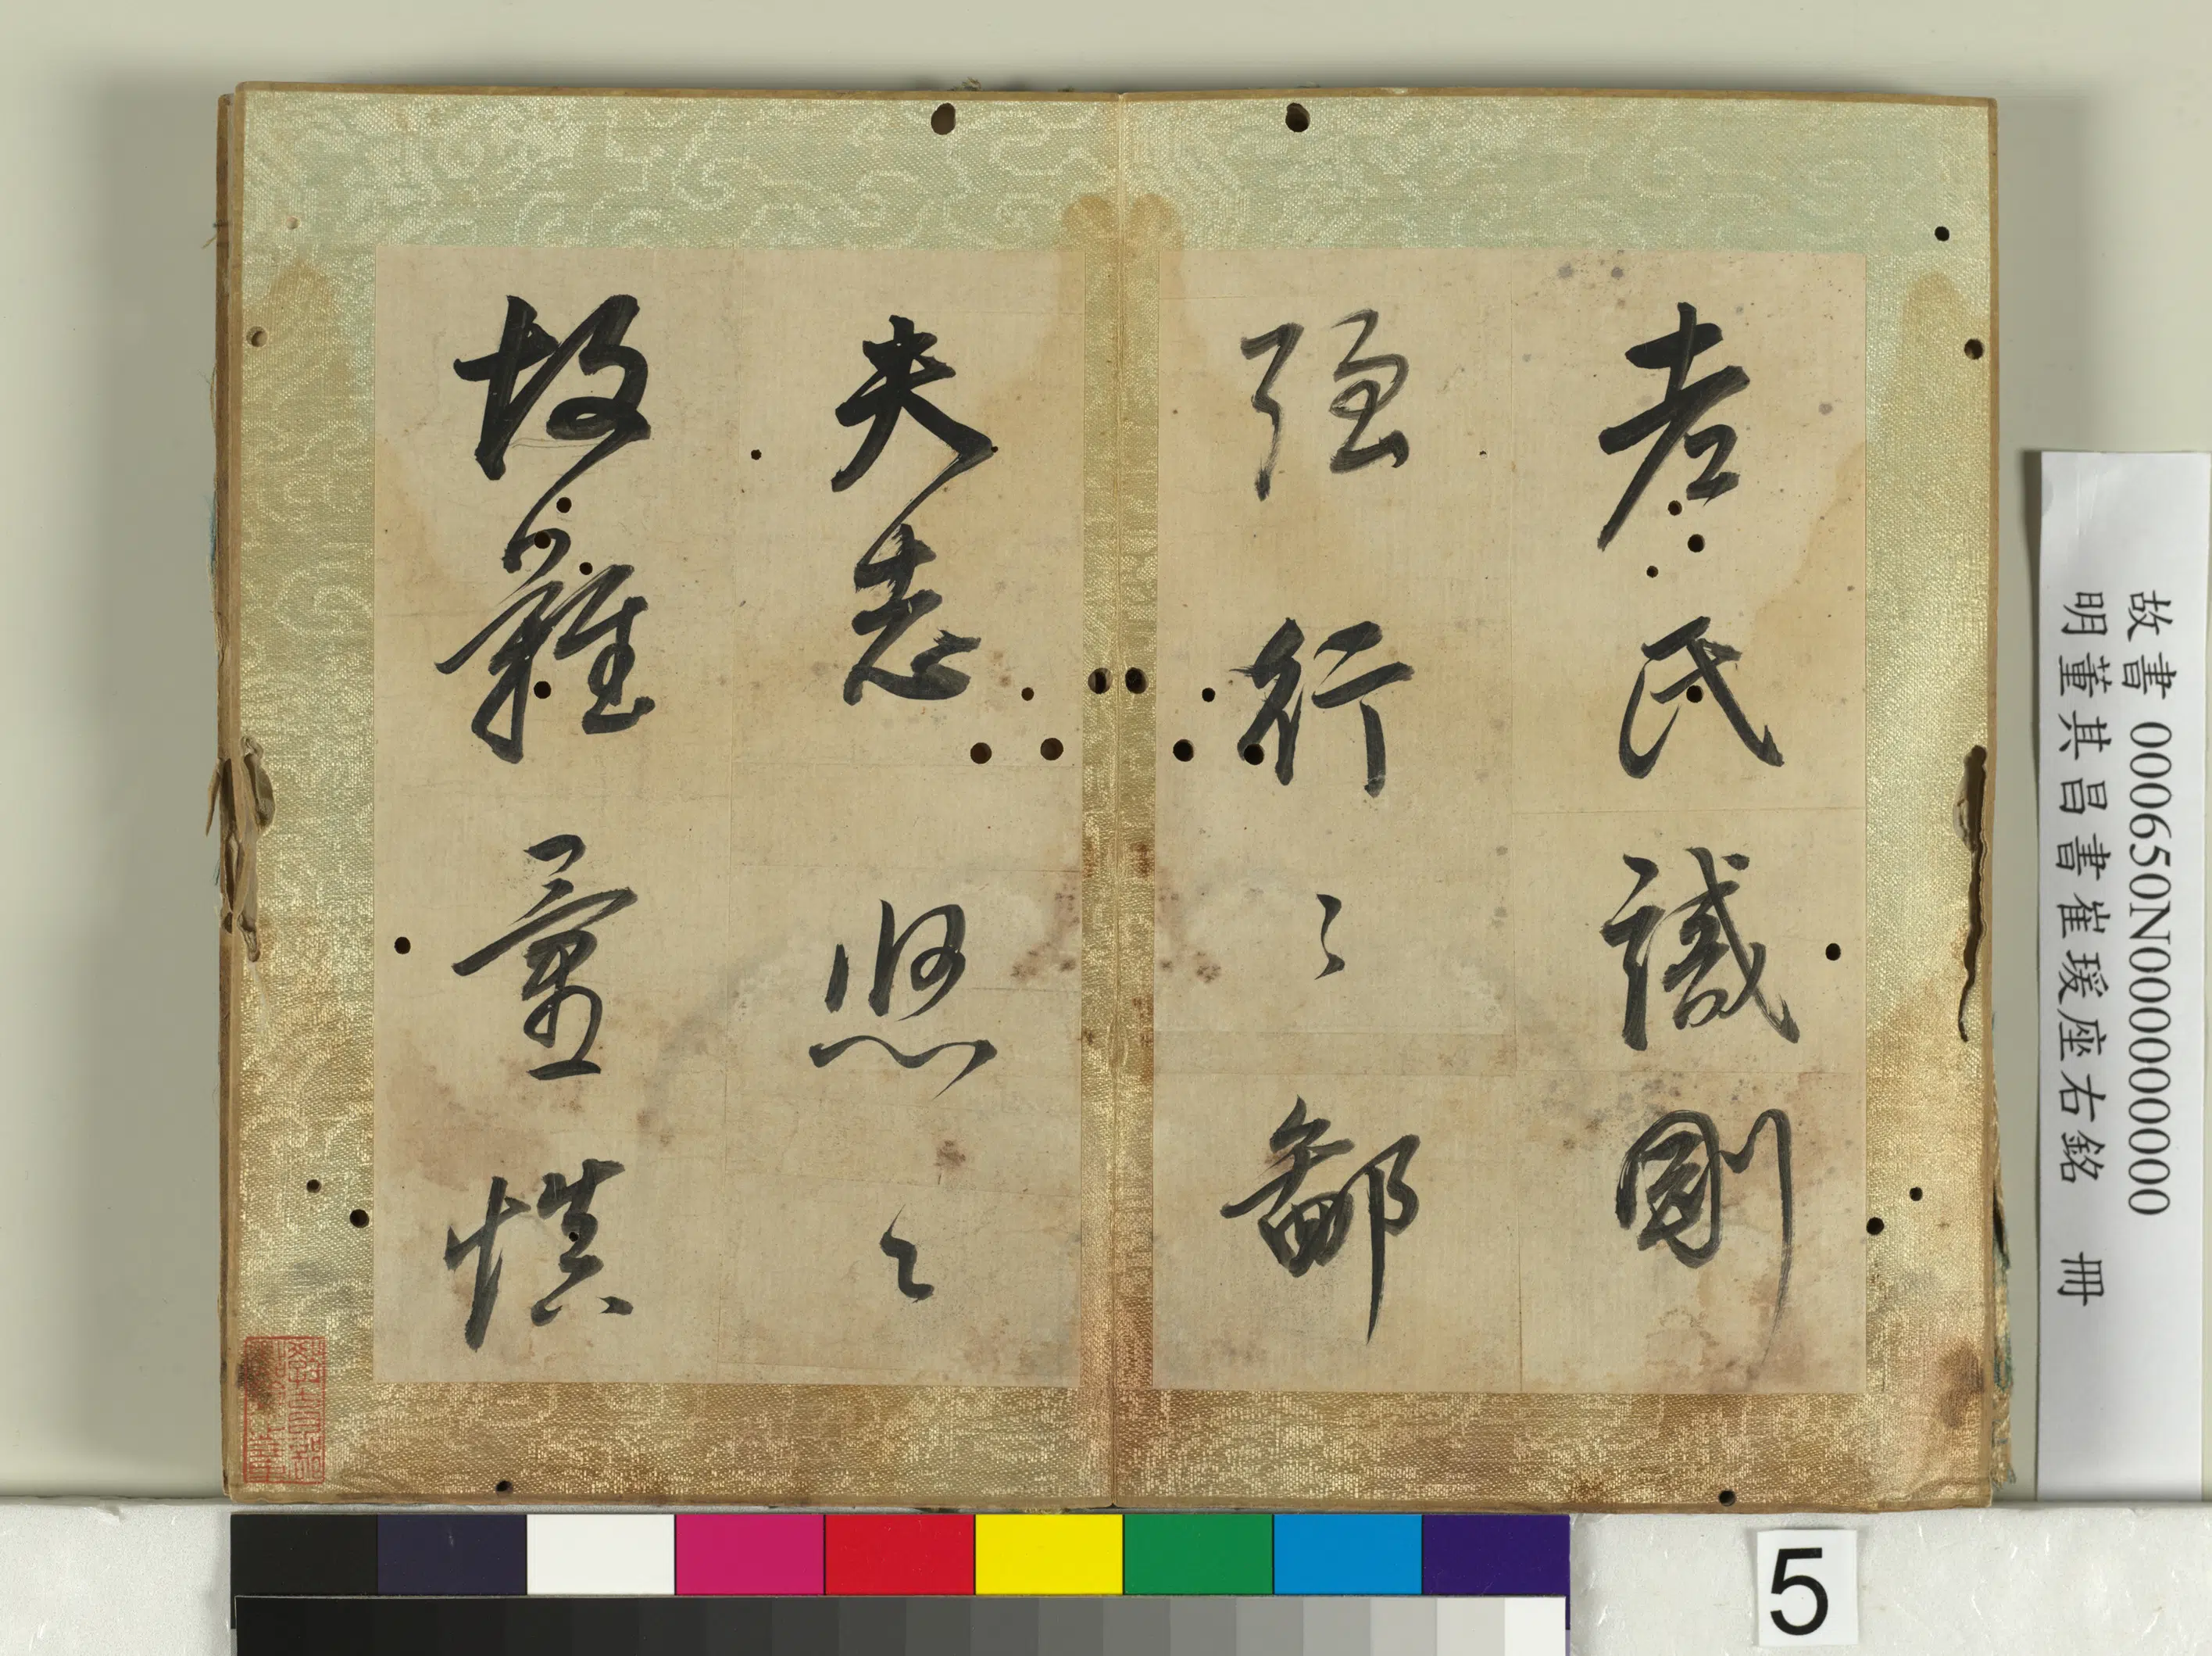 老氏誡剛
强行〻鄙
夫志悠〻
故難量慎
故書 000650N000000000
明董其昌書崔瑗座右銘 冊
5